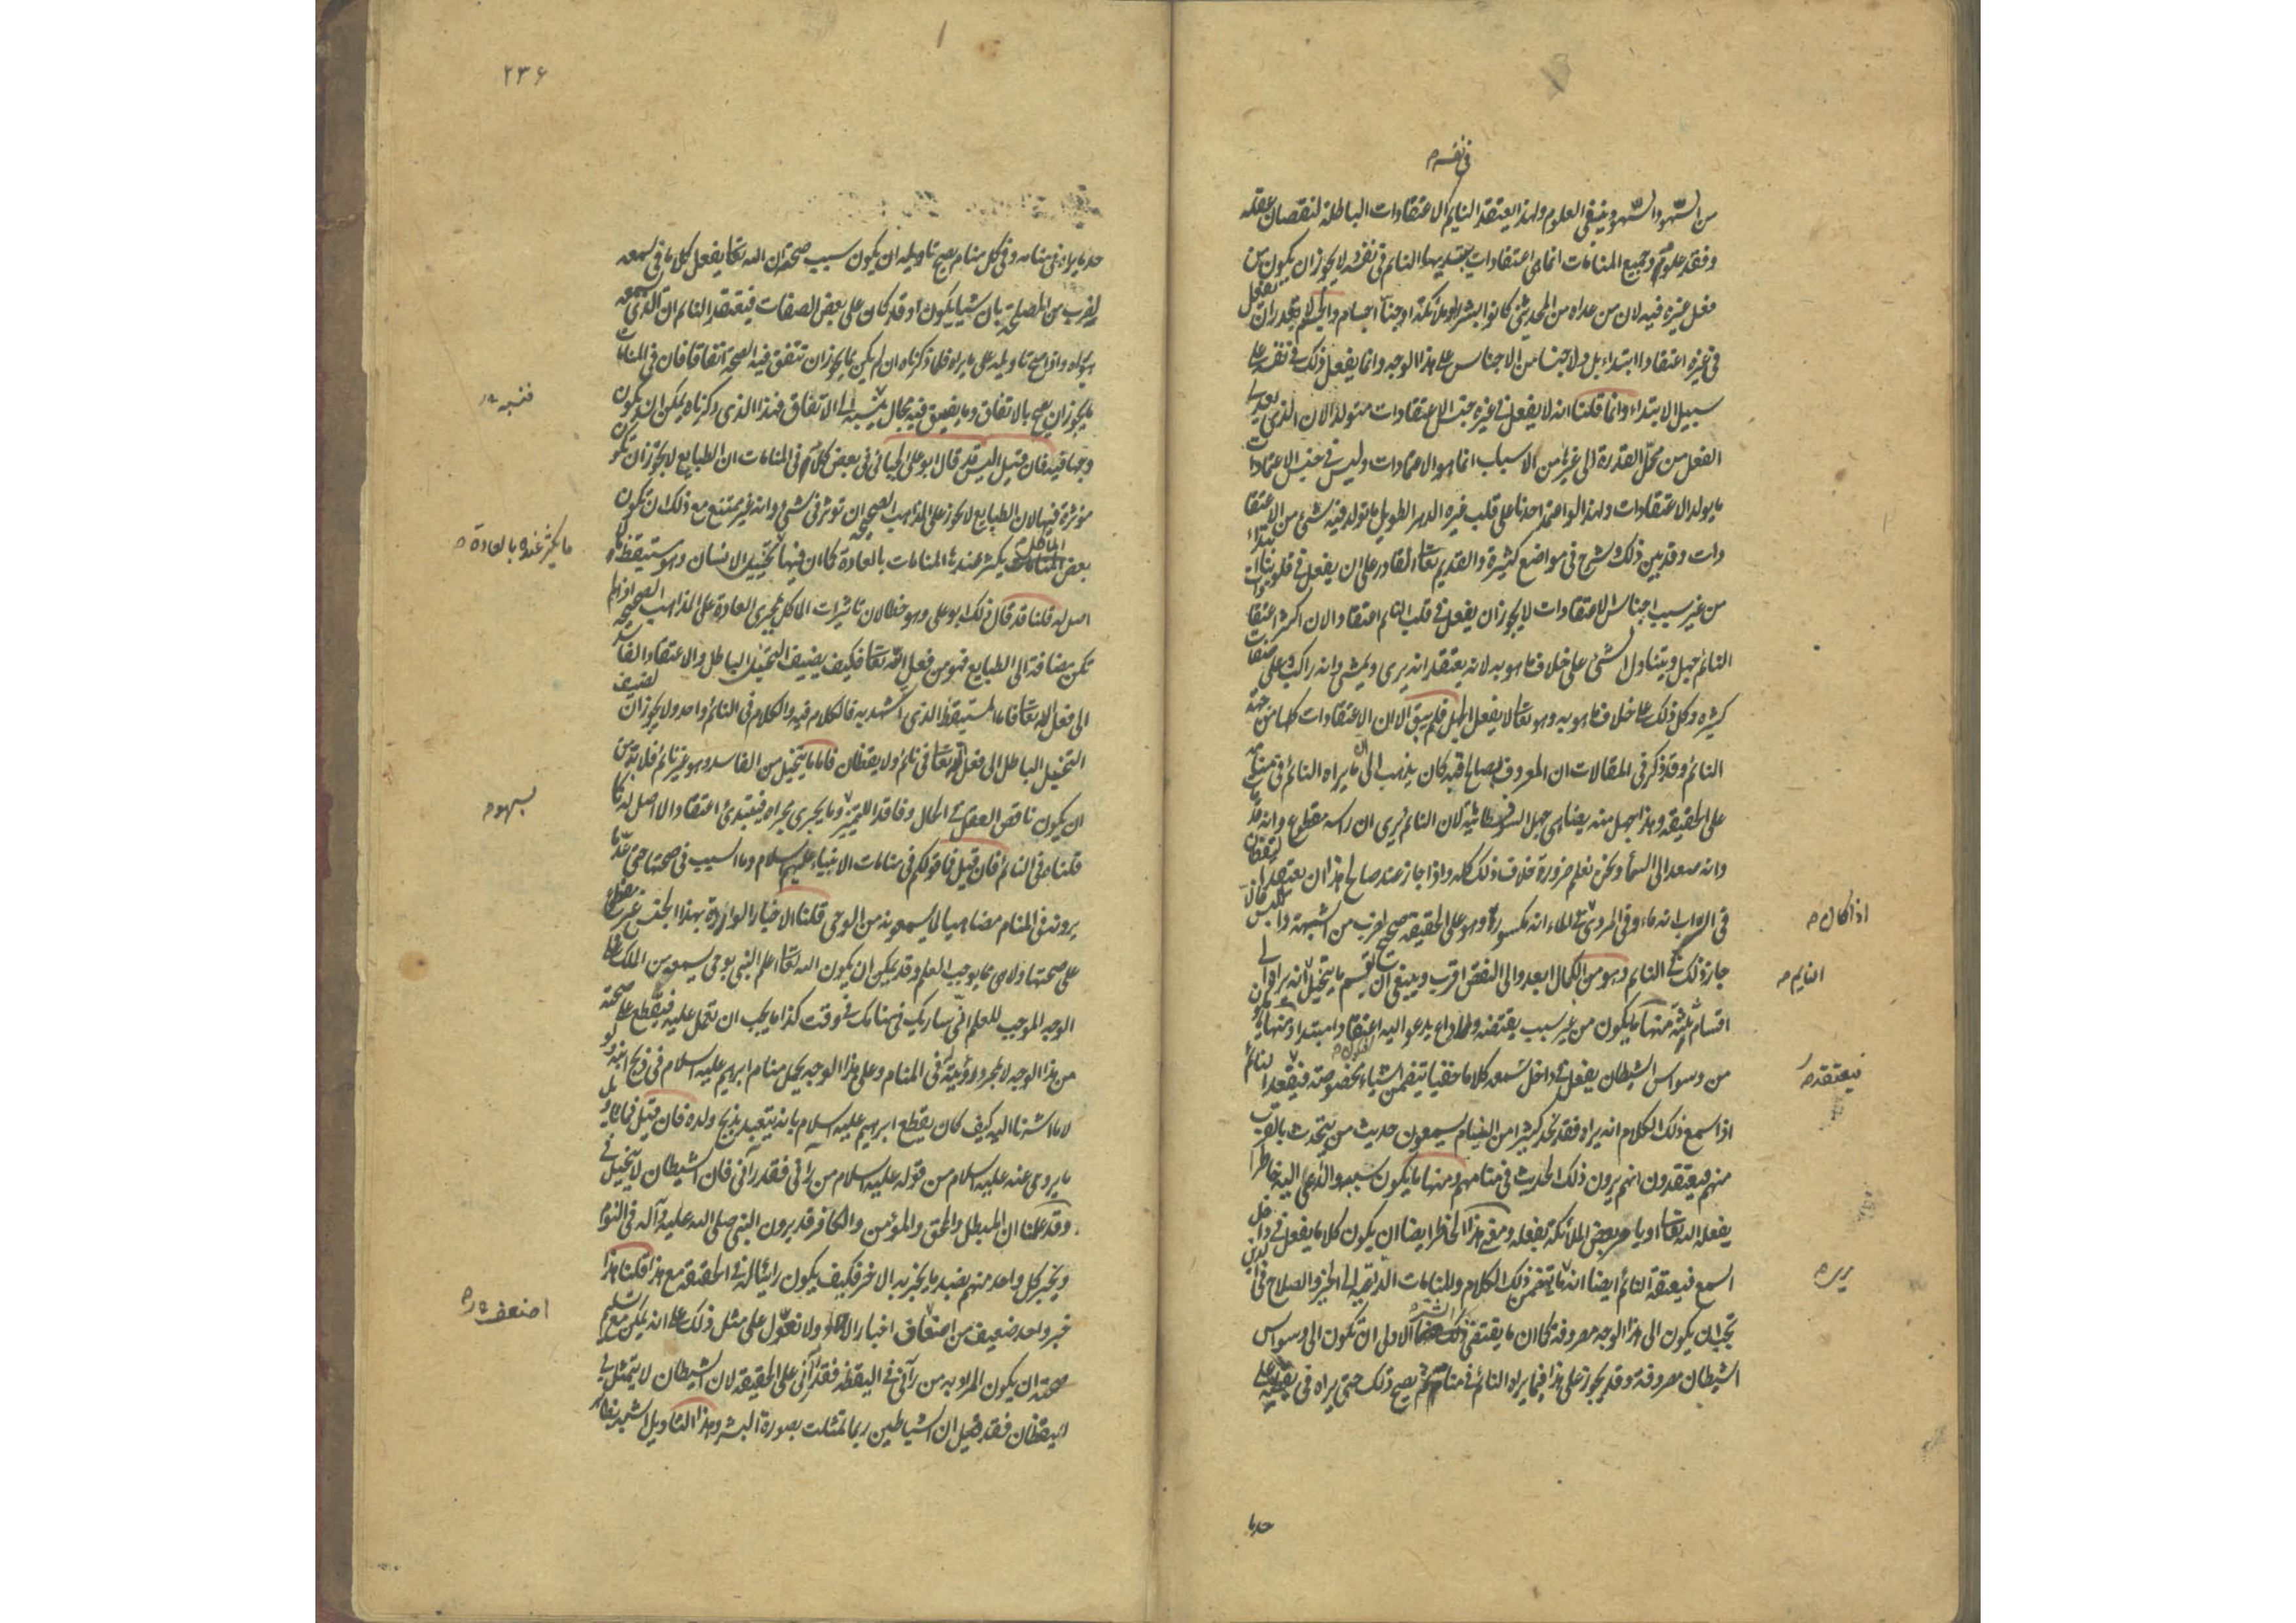 في نفسه م
من السهو والسهو ينفي العلوم ولهذا يعتقد النايم الاعتقادات الباطلة لنقصان عقله
وفقد علومه وجميع المنامات انما هي اعتقادات يبتديها النائم في نفسه ولا يجوز ان يكون من
فعل غيره فيه لان من عداه من المحدثين كانوا بشرا او ملائكة او جنا اجسام والجسم لا يقدر ان يفعل
في غيره اعتقادا ابتداء بل ولا جنسا من الاجناس على هذا الوجه وانما يفعل ذلك في نفسه على
سبيل الابتداء وانما قلنا انه لا يفعل في غيره جنس الاعتقادات متولدا لان الذي يعدي
الفعل من محل القدرة الى غيرها من الاسباب انما هو الاعتمادات وليس في جنس الاعتمادات
ما يولد الاعتقادات ولهذا لو اعتمد احدنا على قلب غيره الدهر الطويل ما تولد فيه شئ من الاعتقا
دات وقد بين ذلك وشرح في مواضع كثيرة والقديم تعالى القادر على ان يفعل في قلوبنا ابتداء
من غير سبب اجناس الاعتقادات لا يجوز ان يفعل في قلب النائم اعتقادا لان اكثر اعتقا
النائم جهل ويتناول الشئ على خلاف ما هو به لانه يعتقد انه يرى ويمشي وانه راكب وعلى صفات
كثيره وكل ذلك على خلاف ما هو به وهو تعالى لا يفعل الجهل فلم يبق الا ان الاعتقادات كلها من جهة
النائم وقد ذكر في المقالات ان المعروف بصالح قبه كان يذهب الى ان ما يراه النائم في منامه
على الحقيقة وهذا جهل منه يضاهي جهل السوفسطائية لان النائم يرى ان راسه مقطوع وانه قد مات
وانه صعد الى السماء ونحن نعلم ضرورة خلاف ذلك كله واذا جاز عند صالح هذا ان يعتقد اليقظان
في السراب انه ماء وفي المردي في الماء انه مكسور وهو على الحقيقة صحيح لضرب من الشبهة واللبس فالا
جاز ذلك في النايم وهو من الكمال ابعد والى النقص اقرب وينبغي ان يقسم ما يتخيل انه يراه الى
اقسام ثلثه منها ما يكون من غير سبب يقتضيه ولا داع يدعو اليه اعتقادا مبتدا ومنها ما يكون
من وسواس الشيطان يفعل في داخل سمعه كلاما خفيا يتضمن اشياء مخصوصة فيعتقد النائم
اذا سمع ذلك الكلام انه يراه فقد نجد كثيرا من النيام يسمعون حديث من يتحدث بالقرب
منهم فيعتقدون انهم يرون ذلك الحديث في منامهم ومنها ما يكون سببه والداعي اليه خاطرا
يفعله الله تعالى او يامر بعض الملائكة بفعله ومعنى هذا الخاطر ايضا ان يكون كلاما يفعل في داخل
السمع فيعتقد النائم ايضا انه ما يتضمن ذلك الكلام والمنامات الداعية الى الخير والصلاح في الدين
تجب ان يكون الى هذا الوجه مصروفة كما ان ما يقتضي الشر منها الاولى ان تكون الى وسواس
الشيطان مصروفة وقد يجوز على هذا فيما يراه النائم في منامه ثم يصح ذلك حتى يراه في يقظته على
حد ما
اذا كال م
النايم م
فيعتقد م
يرى م
٢٣۶
حد ما يراه في منامه وفي كل منام يصح تاويله ان يكون سبب صحته ان الله تعالى يفعل كلاما في سمعه
لضرب من المصلحة بان شيا يكون او قد كان على بعض الصفات فيعتقد النائم ان الذي يسمعه
هو يراه واذا صح تاويله على ما يراه فما ذكرناه ان لم يكن مما يجوز ان تتفق فيه الصحة اتفاقا فان في المنامات
ما يجوز ان يصح بالاتفاق وما يضيق فيه مجال نسبه الى الاتفاق فهذا الذي ذكرناه يمكن ان يكون
وجها فيه فان قيل اليس قد قال ابو علي الجبائي في بعض كلامه في المنامات ان الطبايع لا يجوز ان تكون
مؤثرة فيها لان الطبايع لا يجوز على المذاهب الصحيحه ان توثر في شئ وانه غير ممتنع مع ذلك ان تكون
بعض الماكل يكثر عندها المنامات بالعادة كما ان فيها ما تخييل الانسان وهو مستيقظ ما لا
اصل له قلنا قد قال ذلك ابو علي وهو خطا لان تاثيرات الماكل بمجرى العادة على المذاهب الصحيحه اذا لم
تكن مضافة الى الطبايع فهو من فعل الله تعالى فكيف يضيف التخيل الباطل والاعتقاد الفاسد
الى فعل الله تعالى فاما المستيقظ الذي استشهد به فالكلام فيه والكلام في النائم واحد ولا يجوز ان نضيف
التخيل الباطل الى فعل الله تعالى في نائم ولا يقظان فاما ما يتخيل من الفاسد وهو غير نائم فلا بد من
ان يكون ناقص العقل في الحال وفاقد التمييز وما يجري مجراه فيبتدئ اعتقادا لا اصل له كما
قلناه في النائم فان قيل فما قولكم في منامات الانبياء عليهم السلام وما السبب في صحتها حتى عد ما
يرونه في المنام مضاهيا لما يسمعونه من الوحي قلنا الاخبار الواردة بهذا الجنس غير مقطوع
على صحتها ولا هي مما يوجب العلم وقد يمكن ان يكون الله تعالى اعلم النبي بوحي يسمعه من الملك على
الوجه الموجب للعلم اني ساريك في منامك في وقت كذا ما يجب ان تعمل عليه فيقطع على صحته
من هذا الوجه لا لمجرد رؤيته في المنام وعلى هذا الوجه يحمل منام ابرهيم عليه السلام في ذبح ابنه ولو
لا ما اشرنا اليه كيف كان يقطع ابرهيم عليه السلام بانه يتعبد بذبح ولده فان قيل فما تاويل
ما يروى عنه عليه السلام من قوله عليه السلام من راني فقد رآني فان الشيطان لا يتخيل بي
وقد علمنا ان المبطل والمحق والمؤمن والكافر قد يرون النبي صلى الله عليه وآله في النوم
ويخبر كل واحد منهم بضد ما يخبر به الاخر فكيف يكون رائيا له في الحقيقة مع هذا قلنا هذا
خبر واحد ضعيف من اضعاف اخبار الاحاد ولا نعول على مثل ذلك على انه يمكن مع تسليم
صحته ان يكون المراد به من رآني في اليقظه فقد رآني على الحقيقة لان الشيطان لا يتمثل بي
لليقظان فقد قيل ان الشياطين ربما تمثلت بصورة البشر وهذا التاويل اشبه بظاهر
ما يكثر عنده بالعادة م
بسهو م
اضعف م